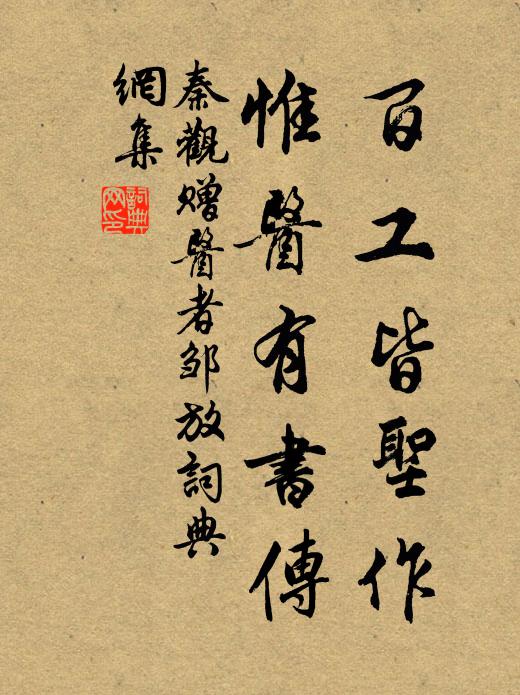 百工皆聖作
惟醫有書傳
秦觀贈醫者邹放詞典
網集
詞典
网印